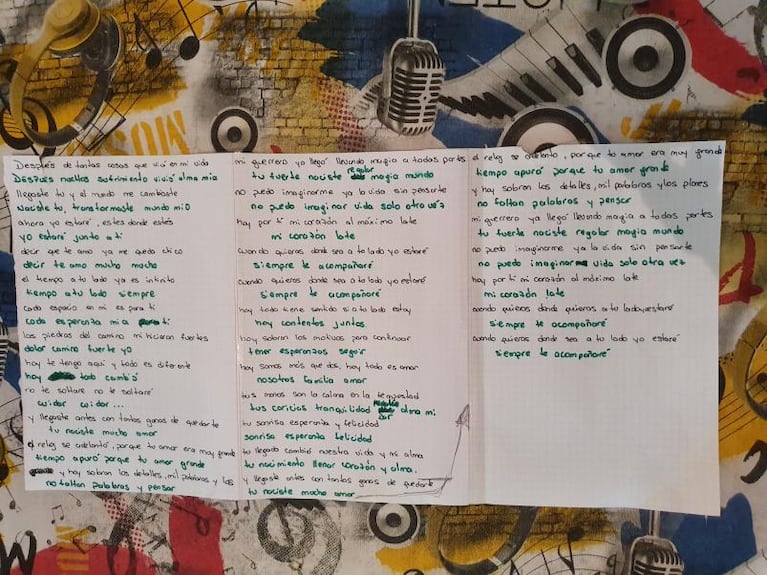 Después de tantas cosas que viví en mi vida
Después noches sufrimiento vivió alma mia
llegaste tu y el mundo me cambiaste
Naciste tu, transformaste mundo mio
ahora yo estaré, estes donde estés
yo estaré junto a ti
decir que te amo ya me queda chico
decir te amo mucho mucho
el tiempo a tu lado ya es infinito
tiempo a tu lado siempre
cada espacio en mi es para ti
cada esperanza mia ti
las piedras del camino me hicieron fuertes
dolor camino fuerte yo
hoy te tengo aquí y todo es diferente
hoy todo cambió
no te soltare no te soltaré
cuidar cuidar...
y llegaste antes con tantas ganas de quedarte
tu naciste mucho amor
el reloj se adelantó, porque tu amor era muy grande
tiempo apuró porque tu amor grande
y hoy sobran los detalles, mil palabras y los
no faltan palabras y pensar
mi guerrero ya llegó llenando magia a todas partes
tu fuerte naciste regalar magia mundo
no puedo imaginarme ya la vida sin pensarte
no puedo imaginar vida solo otra vez
hoy por ti mi corazón al máximo late
mi corazón late
cuando quieras donde sea a tu lado yo estaré
siempre te acompañaré
cuando quieras donde sea a tu lado yo estaré
siempre te acompañaré
hoy todo tiene sentido si a tu lado estoy
hoy contentos juntos
hoy sobran los motivos para continuar
tener esperanzas seguir
hoy somos más que dos, hoy todo es amor
nosotros familia amor
tus manos son la calma en la tempestad
tus caricias tranquilidad dar alma mi
tu sonrisa esperanza y felicidad
sonrisa esperanza felicidad
tu llegada cambió nuestra vida y mi alma
tu nacimiento llenar corazón y alma.
y llegaste antes con tantas ganas de quedarte
tu naciste mucho amor
el reloj se adelanto, porque tu amor era muy grande
tiempo apuró porque tu amor grande
y hoy sobran los detalles, mil palabras y los planes
no faltan palabras y pensar
mi guerrero ya llegó llenando magia a todas partes
tu fuerte naciste regalar magia mundo
no puedo imaginarme ya la vida sin pensarte
no puedo imaginar vida solo otra vez
hoy por ti mi corazón al máximo late
mi corazón late
cuando quieras donde quieras a tu lado yo estaré
siempre te acompañaré
cuando quieras donde sea a tu lado yo estaré
siempre te acompañaré